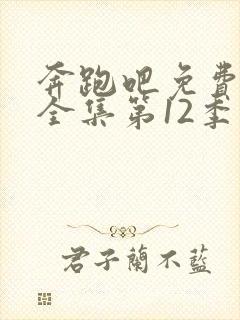 奔跑吧免費
全集第12季
君子蘭不藍